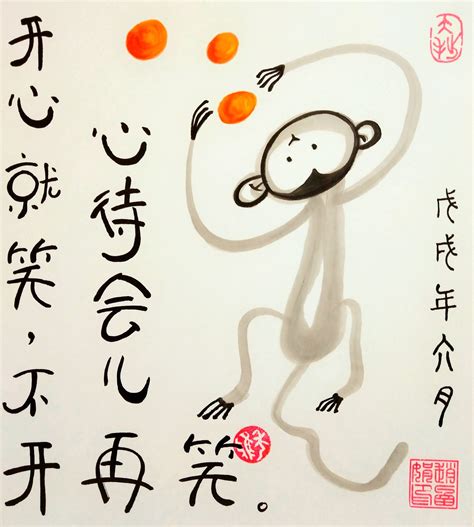 开心就笑，不开
心待会儿再笑。
戊戌年六月